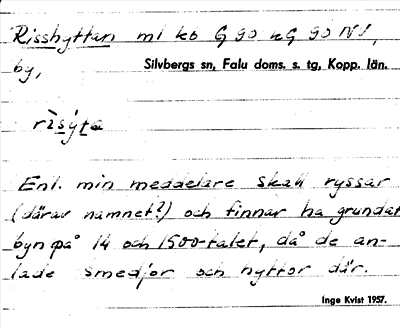 Risshyttan ml kb G 90 uG 90 NV,
by, Silvbergs sn, Falu doms. s. tg, Kopp. län.
rìsýta
Enl. min meddelare skall ryssar
(därav namnet?) och finnar ha grundat
byn på 14 och 1500-talet, då de an-
lade smedjor och hyttor där.
Inge Kvist 1957.